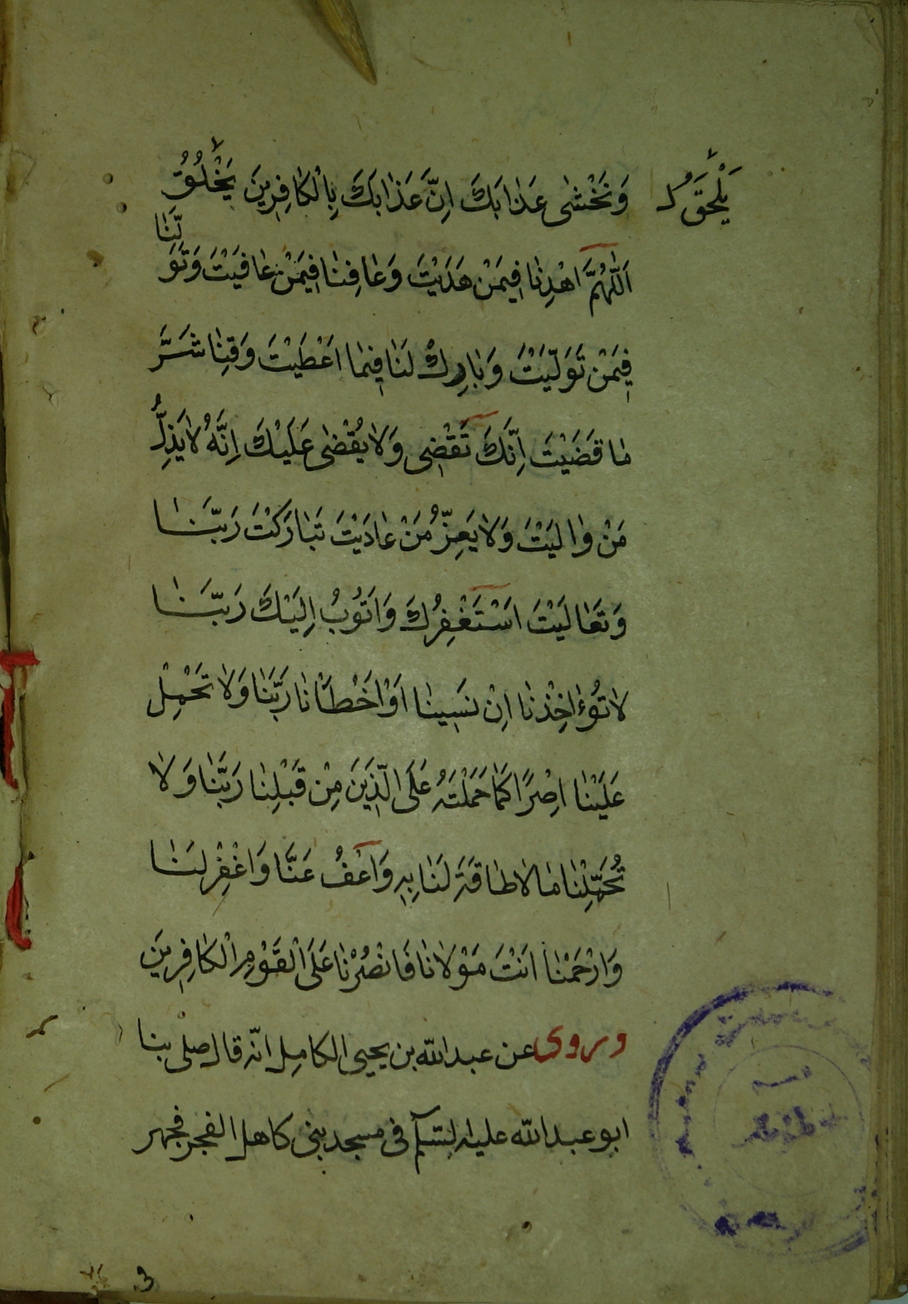 وَنَخْشٰى عَذٰابَكَ اِنَّ عَذٰابَكَ بِالْكٰافِرِينَ يَخْلُقُ
يُلْحَقُ
اَللّٰهُمَّ اهْدِنٰا فِيمَنْ هَدَيْتَ وَعٰافِنٰا فِيمَنْ عٰافَيْتَ وَتَوَ
لَّنٰا
فِيمَنْ تَوَلَّيْتَ وَبٰارِكْ لَنٰا فِيمٰا اَعْطَيْتَ وَقِنٰا شَرَّ
مٰا قَضَيْتَ اِنَّكَ تَقْضِى وَلٰا يُقْضٰى عَلَيْكَ اِنَّهُ لٰا يَذِلُّ
مَنْ وٰالَيْتَ وَلٰا يَعِزُّ مَنْ عٰادَيْتَ تَبٰارَكْتَ رَبَّنٰا
وَتَعٰالَيْتَ اَسْتَغْفِرُكَ وَاَتُوبُ اِلَيْكَ رَبَّنٰا
لٰا تُؤٰاخِذْنٰا اِنْ نَسِينٰا اَوْ اَخْطَأْنٰا رَبَّنٰا وَلٰا تَحْمِلْ
عَلَيْنٰا اِصْرًا كَمٰا حَمَلْتَهُ عَلَى الَّذِينَ مِنْ قَبْلِنٰا رَبَّنٰا وَلٰا
تُحَمِّلْنٰا مٰا لٰا طٰاقَةَ لَنٰا بِهِ وَاعْفُ عَنَّا وَاغْفِرْ لَنٰا
وَارْحَمْنٰا اَنْتَ مَوْلٰانٰا فَانْصُرْنٰا عَلَى الْقَوْمِ الْكٰافِرِينَ
وروى عن عبدالله بن يحيى الكاملى انّه قال صلى بنا
ابو عبدالله عليه السّلم فى مسجد بنى كاهل الفجر فجهر